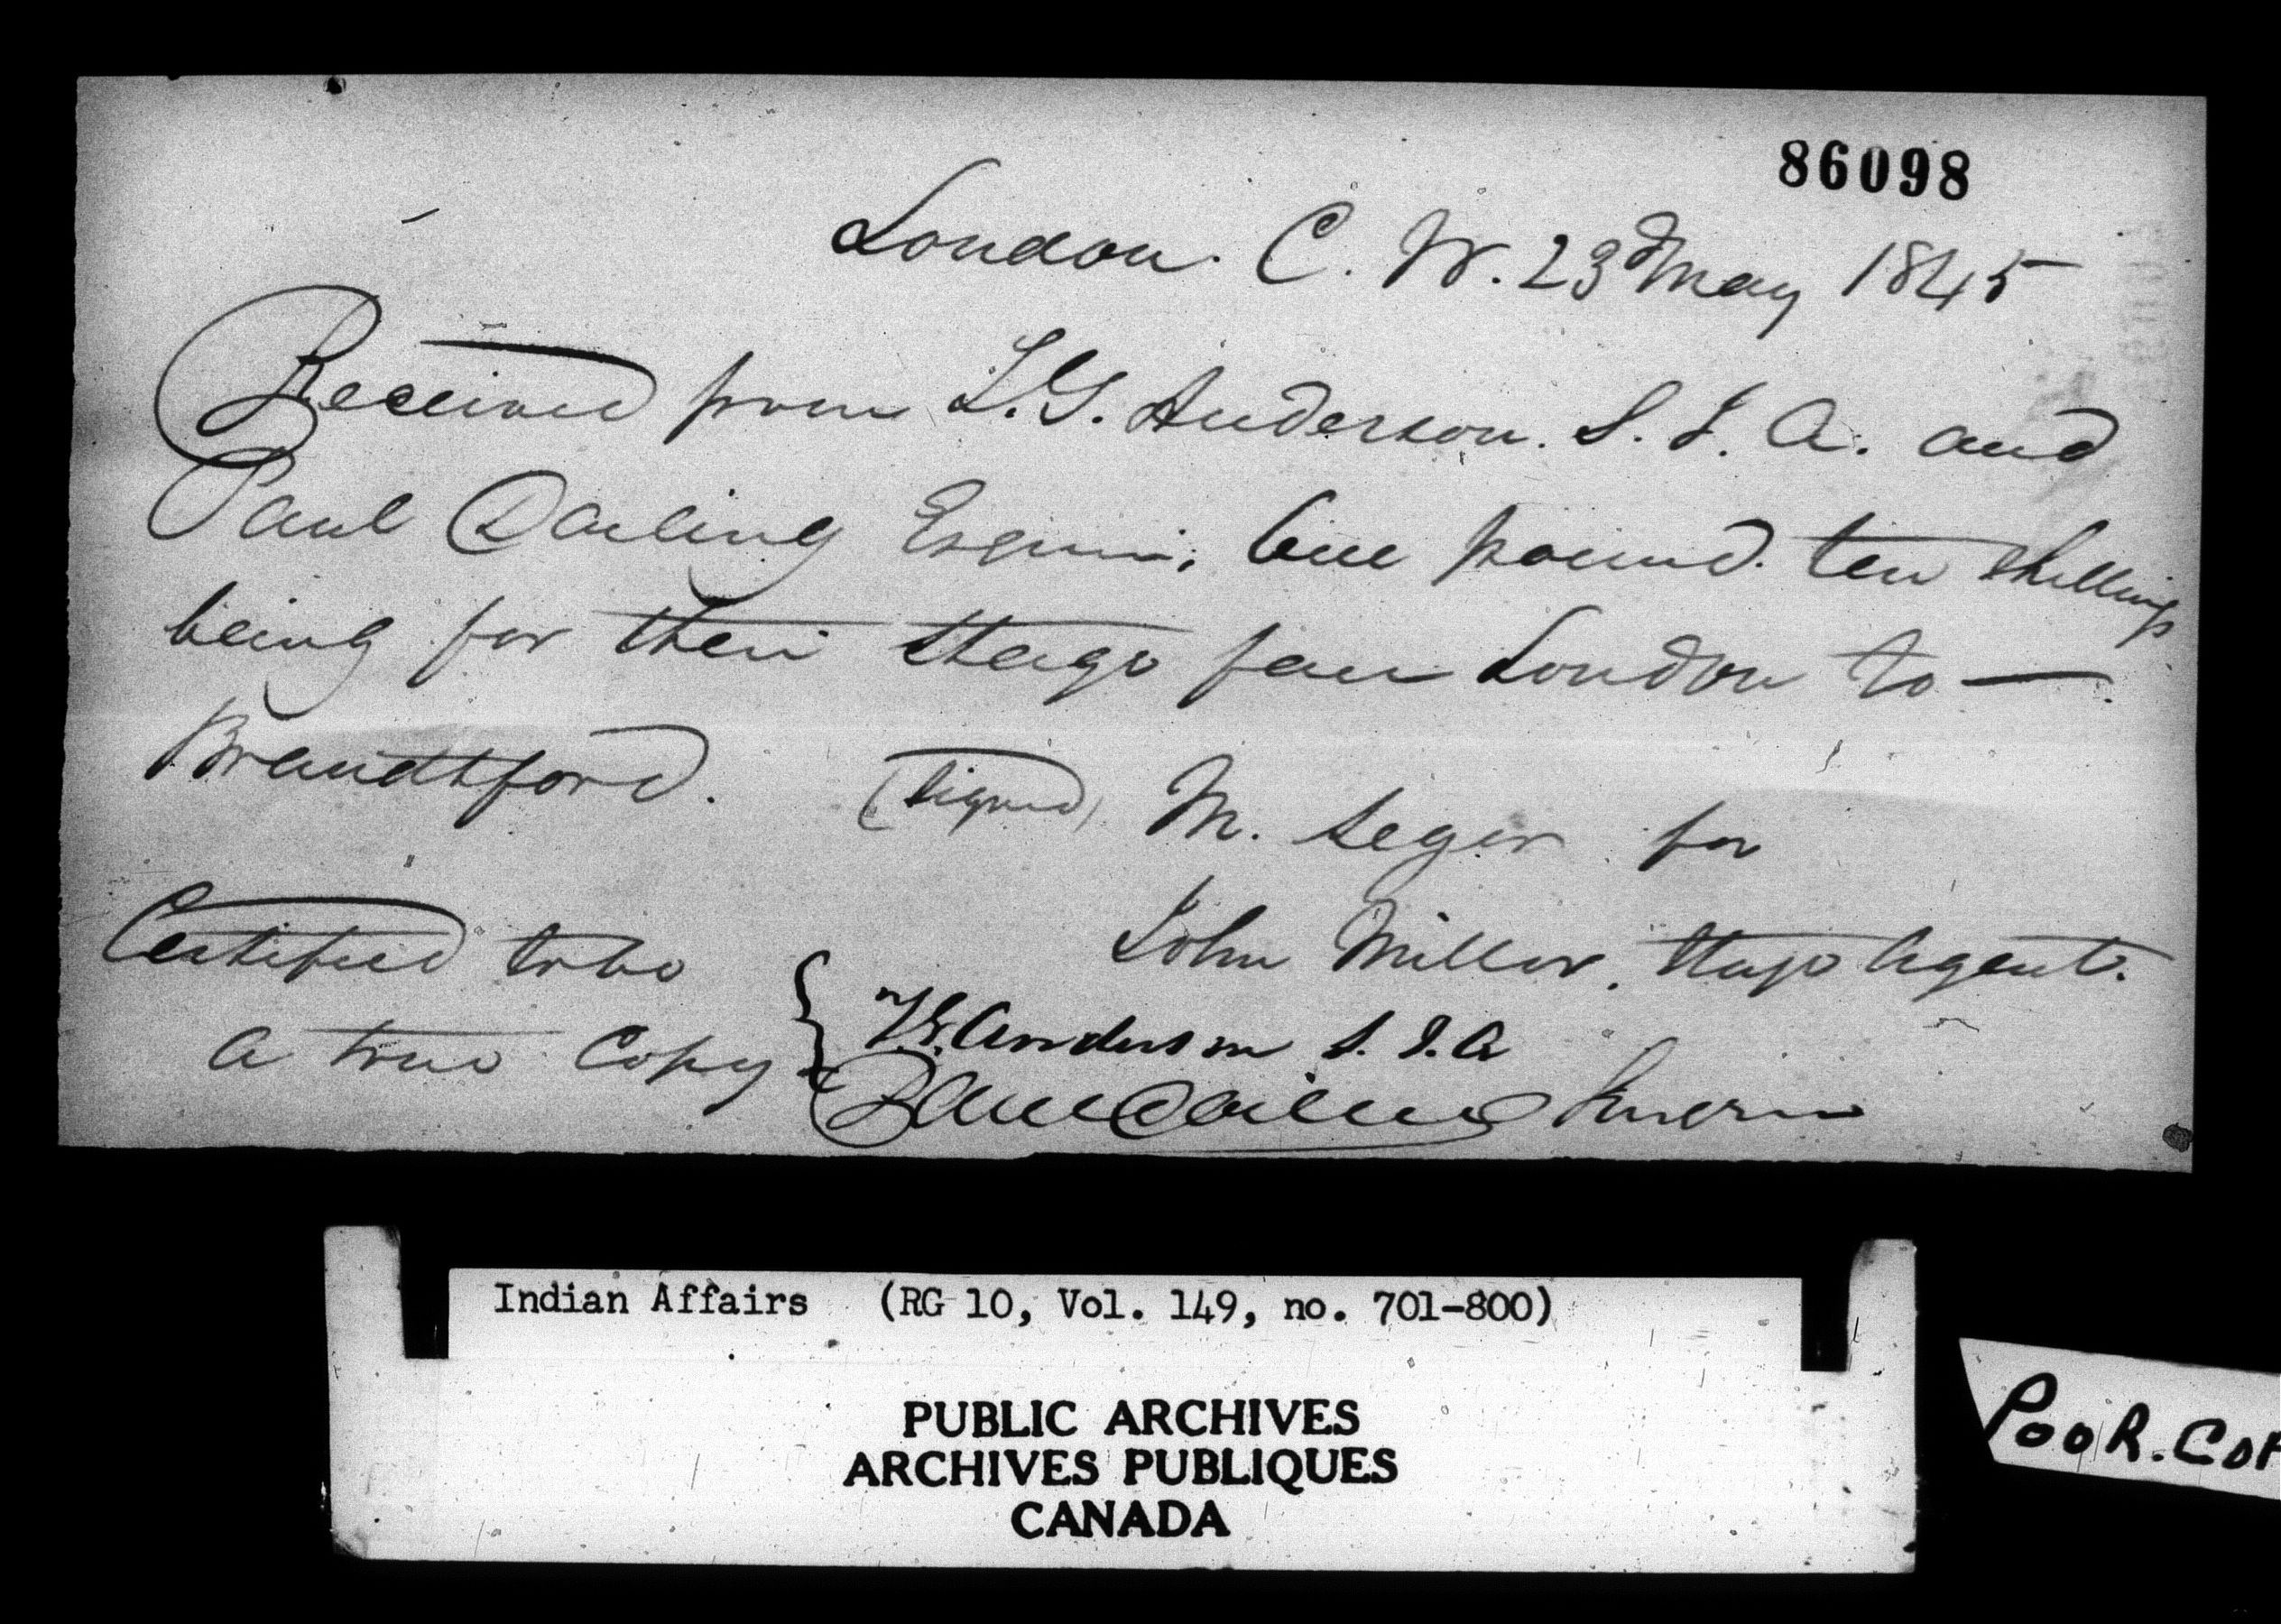 86098
London. C. W. 23d May 1845
Received from T.G. Anderson. S. I. A. and
Paul Darling Esquire, One pound ten shillings
being for their stage fare London to —
Brandtford. (signed) M. Seger for
John Miller, Stage Agent.
Certified to be
a true Copy
T.G. Anderson S. I. A
Paul Darling
Indian Affairs (RG 10, Vol. 149, no. 701-800)
PUBLIC ARCHIVES
ARCHIVES PUBLIQUES
CANADA
POOR.COP